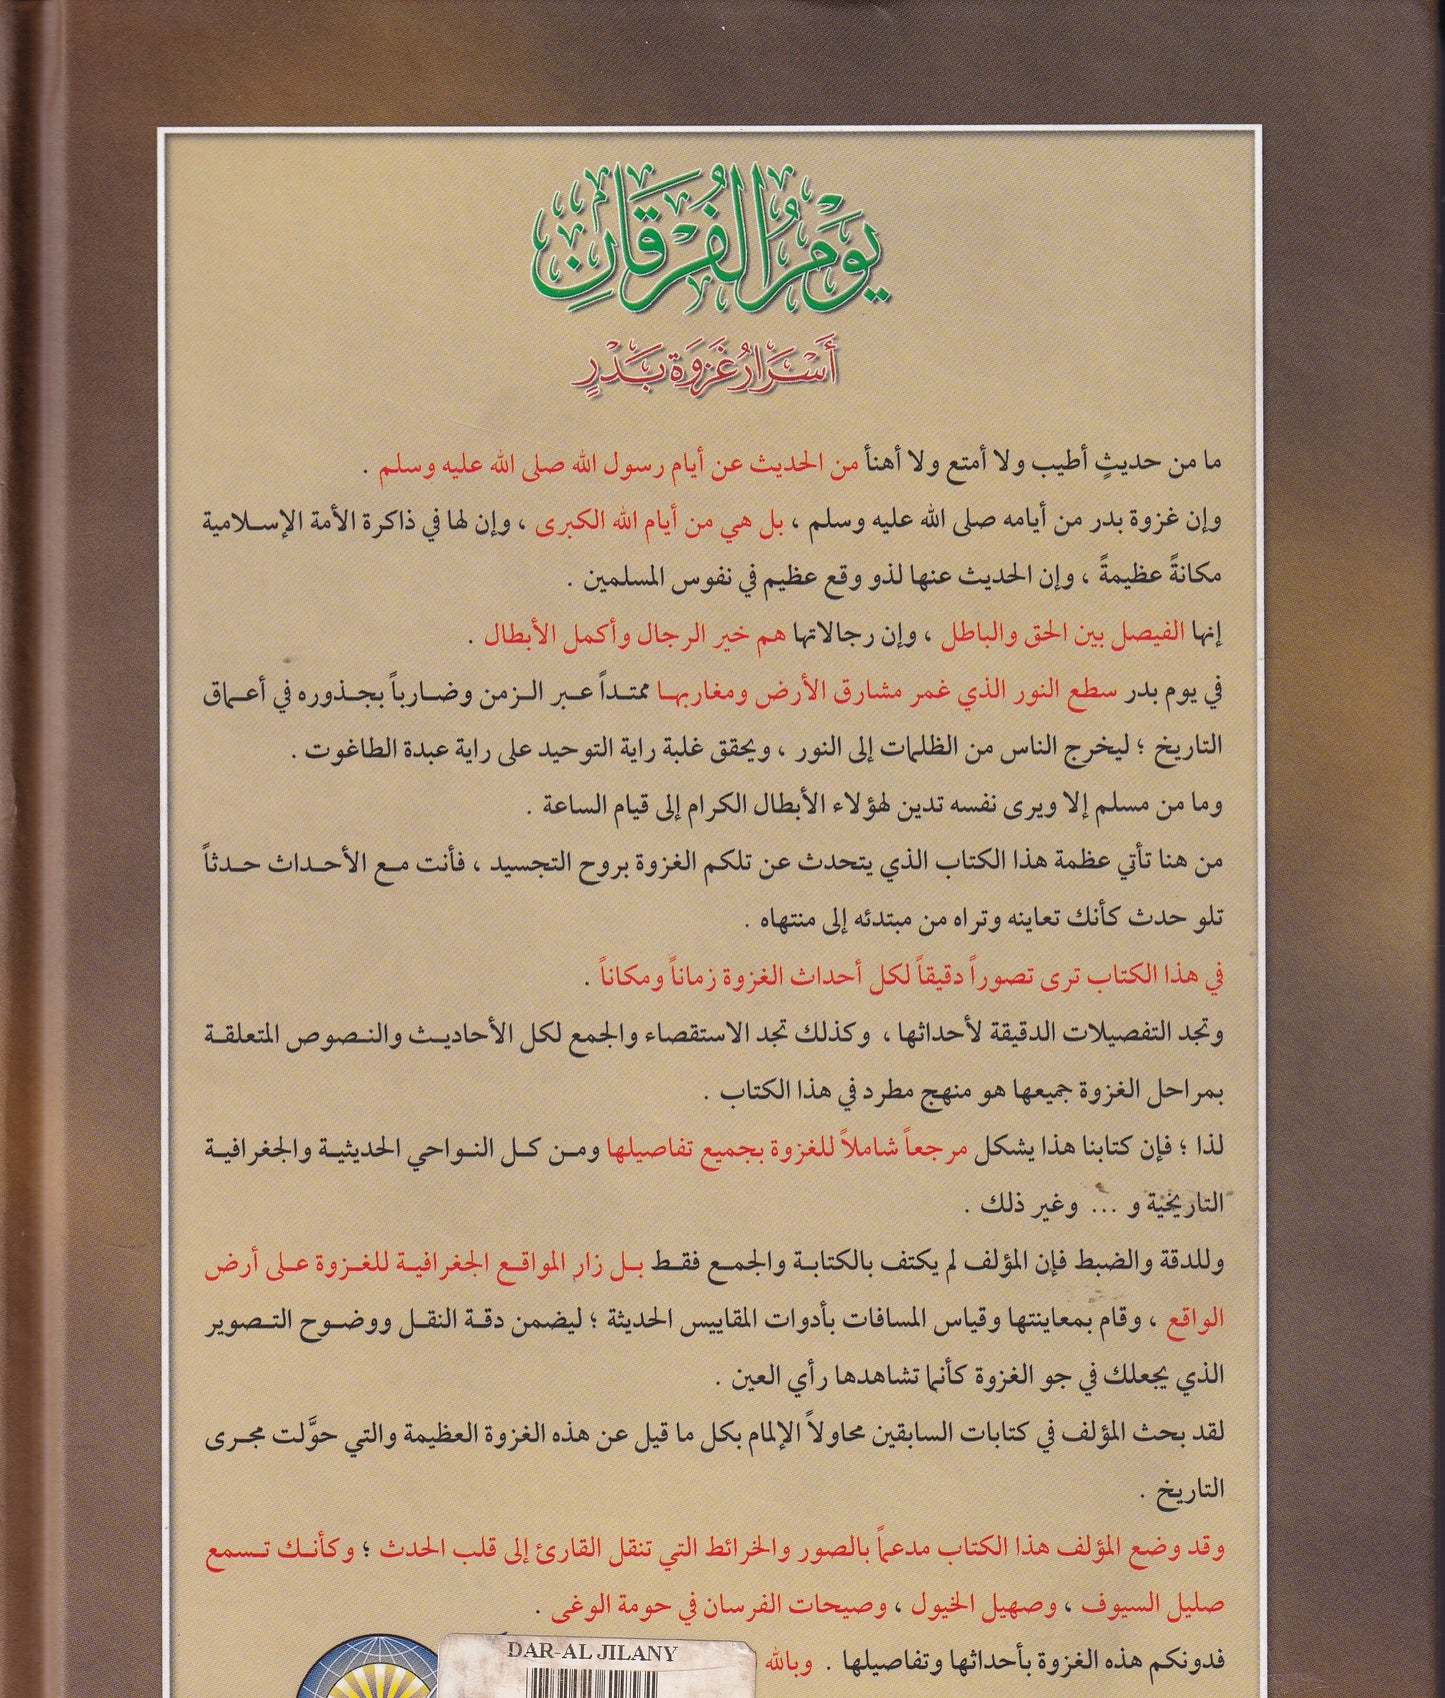 يَوْمُ الْفُرْقَانِ
أَسْرَارُ غَزْوَةِ بَدْرٍ
ما من حديثٍ أطيب ولا أمتع ولا أهنأ من الحديث عن أيام رسول الله صلى الله عليه وسلم .
وإن غزوة بدر من أيامه صلى الله عليه وسلم ، بل هي من أيام الله الكبرى ، وإن لها في ذاكرة الأمة الإسلامية
مكانةً عظيمةً ، وإن الحديث عنها لذو وقع عظيم في نفوس المسلمين .
إنها الفيصل بين الحق والباطل ، وإن رجالاتها هم خير الرجال وأكمل الأبطال .
في يوم بدر سطع النور الذي غمر مشارق الأرض ومغاربها ممتداً عبر الزمن وضارباً بجذوره في أعماق
التاريخ ؛ ليخرج الناس من الظلمات إلى النور ، ويحقق غلبة راية التوحيد على راية عبدة الطاغوت .
وما من مسلم إلا ويرى نفسه تدين لهؤلاء الأبطال الكرام إلى قيام الساعة .
من هنا تأتي عظمة هذا الكتاب الذي يتحدث عن تلكم الغزوة بروح التجسيد ، فأنت مع الأحداث حدثاً
تلو حدث كأنك تعاينه وتراه من مبتدئه إلى منتهاه .
في هذا الكتاب ترى تصوراً دقيقاً لكل أحداث الغزوة زماناً ومكاناً .
وتجد التفصيلات الدقيقة لأحداثها ، وكذلك تجد الاستقصاء والجمع لكل الأحاديث والنصوص المتعلقة
بمراحل الغزوة جميعها هو منهج مطرد في هذا الكتاب .
لذا ؛ فإن كتابنا هذا يشكل مرجعاً شاملاً للغزوة بجميع تفاصيلها ومن كل النواحي الحديثية والجغرافية
التاريخية و ... وغير ذلك .
وللدقة والضبط فإن المؤلف لم يكتف بالكتابة والجمع فقط بل زار المواقع الجغرافية للغزوة على أرض
الواقع ، وقام بمعاينتها وقياس المسافات بأدوات المقاييس الحديثة ؛ ليضمن دقة النقل ووضوح التصوير
الذي يجعلك في جو الغزوة كأنما تشاهدها رأي العين .
لقد بحث المؤلف في كتابات السابقين محاولاً الإلمام بكل ما قيل عن هذه الغزوة العظيمة والتي حوَّلت مجرى
التاريخ .
وقد وضع المؤلف هذا الكتاب مدعماً بالصور والخرائط التي تنقل القارئ إلى قلب الحدث ؛ وكأنك تسمع
صليل السيوف ، وصهيل الخيول ، وصيحات الفرسان في حومة الوغى .
فدونكم هذه الغزوة بأحداثها وتفاصيلها . وبالله
DAR-AL JILANY